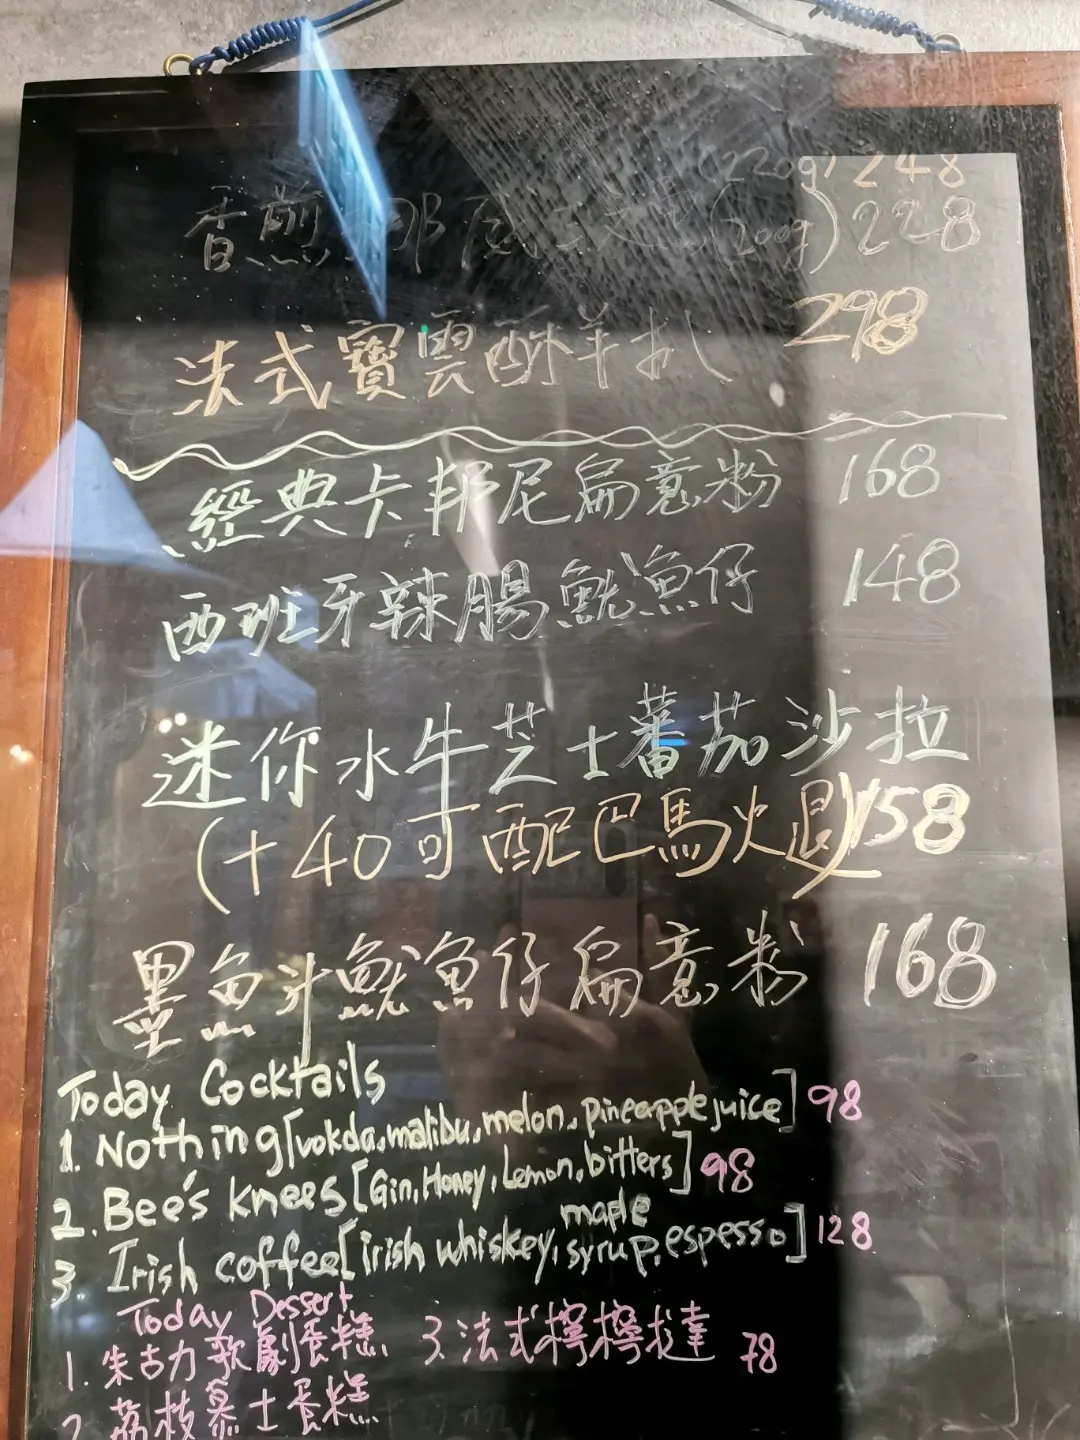 (220g) 248
香煎 (200g) 228
法式寶雲酥羊扒 298
經典卡邦尼扁意粉 168
西班牙辣腸魷魚仔 148
迷你水牛芝士蕃茄沙拉
(+40可配巴馬火退) 158
墨魚汁魷魚仔扁意粉 168
Today Cocktails
1. Nothing [vokda, malibu, melon, pineapple juice] 98
2. Bee's knees [Gin, Honey, Lemon, bitters] 98
3 Irish coffee [irish whiskey, maple syrup, espesso] 128
Today Dessert
1. 朱古力歌劇蛋糕 3. 法式檸檬撻 78
2 荔枝慕士蛋糕